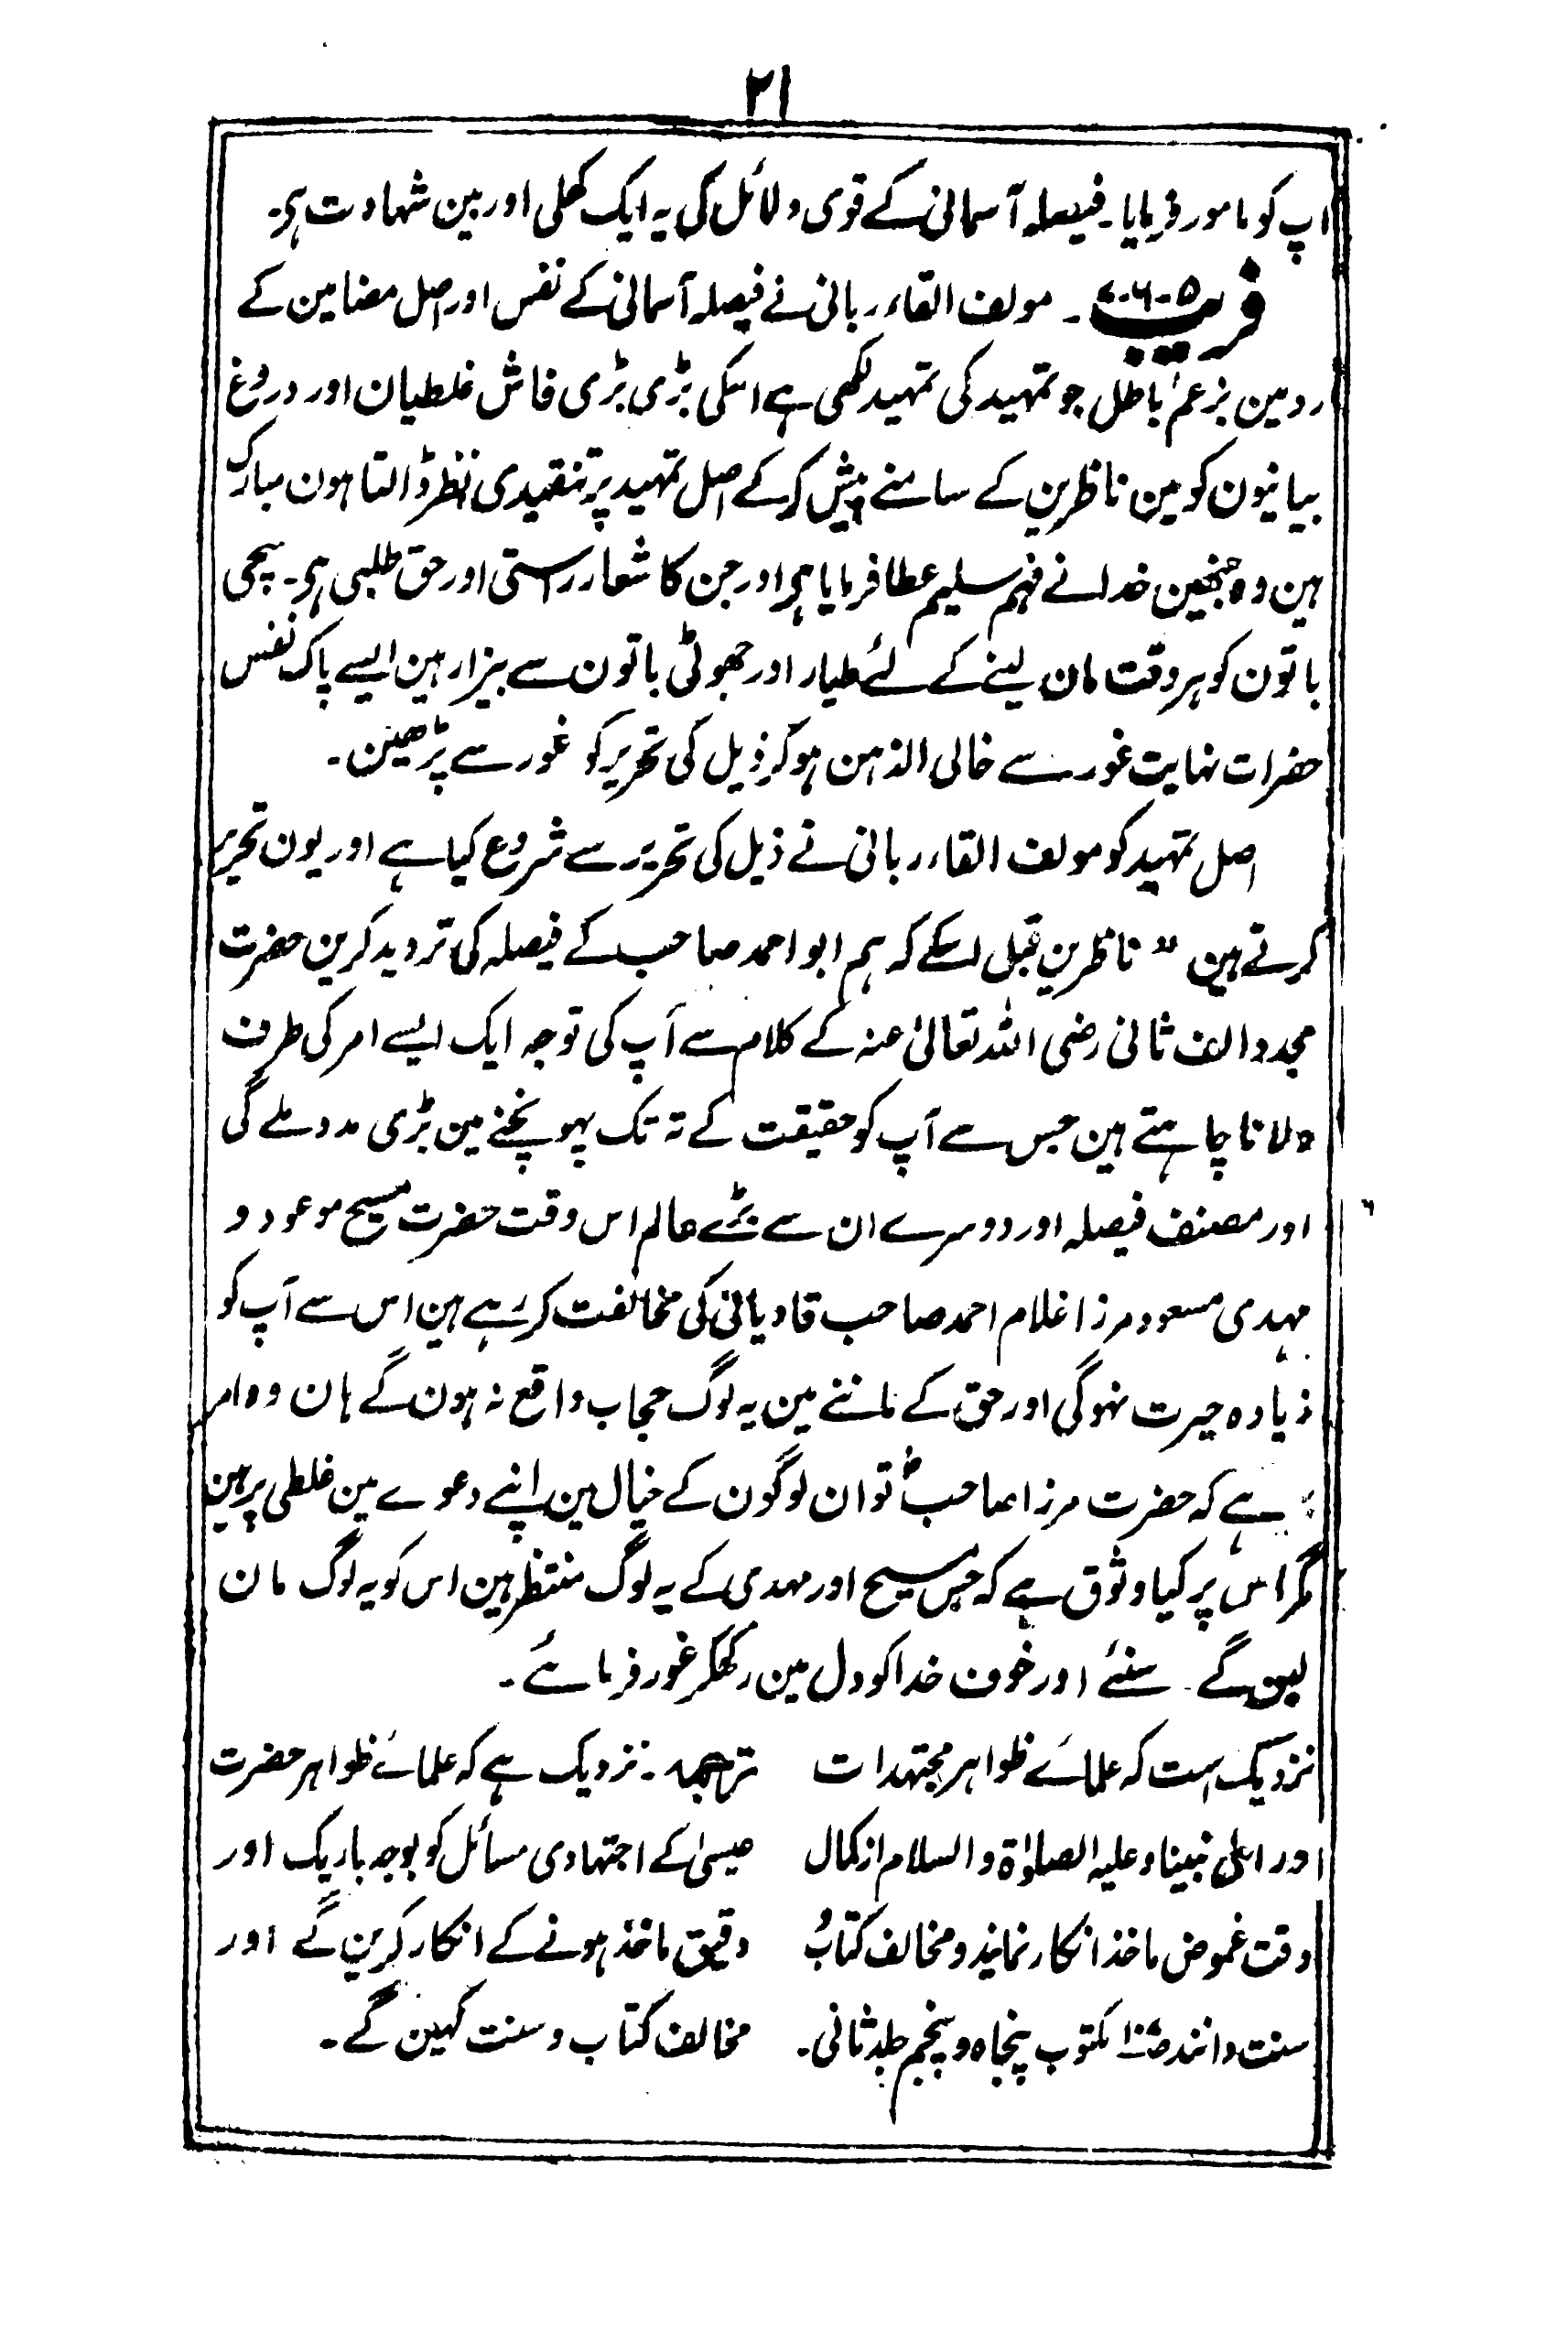 ٢١
آپ کو مامور فرمایا۔ فیصلہ آسمانی کے قوی دلائل کی یہ ایک کھلی اور بین شہادت ہی۔
فریب ۵-۶-۷ ۔ مولف القاء ربانی نے فیصلہ آسمانی کے نفس اور اصل مضامین کے
رد مین بزعم باطل جو تمہید کی تمہید لکھی ہے اسکی بڑی بڑی فاش غلطیان اور دروغ
بیانیون کو مین ناظرین کے سامنے پیش کرکے اصل تمہید پر تنقیدی نظر ڈالتا ہون مبارک
ہین وہ جنھین خدا نے فہم سلیم عطا فرمایا ہی اور جن کا شعار راستی اور حق طلبی ہی۔ سچی
باتون کو ہر وقت مان لینے کے لئے طیار اور جھوٹی باتون سے بیزار ہین ایسے پاک نفس
حضرات نہایت غور سے خالی الذہن ہوکر ذیل کی تحریر کو غور سے پڑھین۔
اصل تمہید کو مولف القاء ربانی نے ذیل کی تحریر سے شروع کیا ہے اور یون تحریر
کرتے ہین ” ناظرین قبل اسکے کہ ہم ابو احمد صاحب کے فیصلہ کی تردید کرین حضرت
مجدد الف ثانی رضی اللہ تعالیٰ عنہ کے کلام سے آپ کی توجہ ایک ایسے امر کی طرف
دلانا چاہتے ہین جس سے آپ کو حقیقت کے تہ تک پہونچنے مین بڑی مدد ملے گی
اور مصنف فیصلہ اور دوسرے ان سے بڑے عالم اس وقت حضرت مسیح موعود و
مہدی مسعود مرزا غلام احمد صاحب قادیانی کی مخالفت کر رہے ہین اس سے آپ کو
زیادہ حیرت نہوگی اور حق کے ماننے مین یہ لوگ حجاب واقع نہ ہون گے ہان وہ امر
یہ ہے کہ حضرت مرزا صاحبؑ تو ان لوگون کے خیال مین اپنے دعوے مین غلطی پر ہین
مگر اس پر کیا وثوق ہے کہ جس مسیح اور مہدی کے یہ لوگ منتظر ہین اس کو یہ لوگ مان
لین گے۔ سنئے اور خوف خدا کو دل مین رکھکر غور فرمائے۔
نزدیک است کہ علمائے ظواہر مجتہدات ترجمہ۔ نزدیک ہے کہ علمائے ظواہر حضرت
اورا علی نبینا وعلیہ الصلوٰۃ والسلام از کمال عیسیٰ کے اجتہادی مسائل کو بوجہ باریک اور
دقت غموض ماخذ انکار نمایند و مخالف کتاب و دقیق ماخذ ہونے کے انکار کرین گے اور
سنت دانند مکتوب پنجاہ و پنجم جلد ثانی۔ مخالف کتاب و سنت کہین گے۔